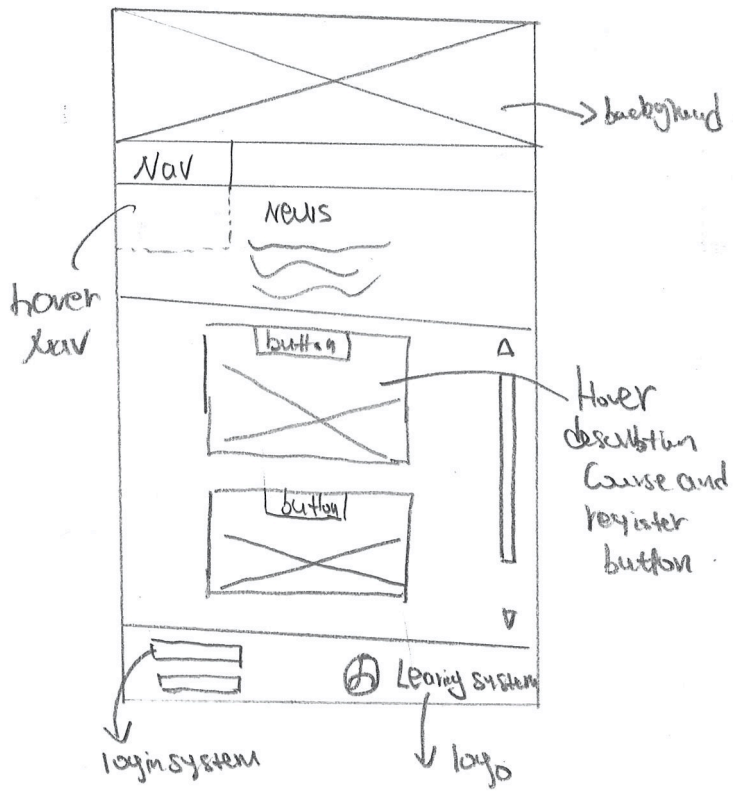 background
Nav
News
hover
Nav
button
Hover
description
Course and
register
button
button
Learing system
login system
logo